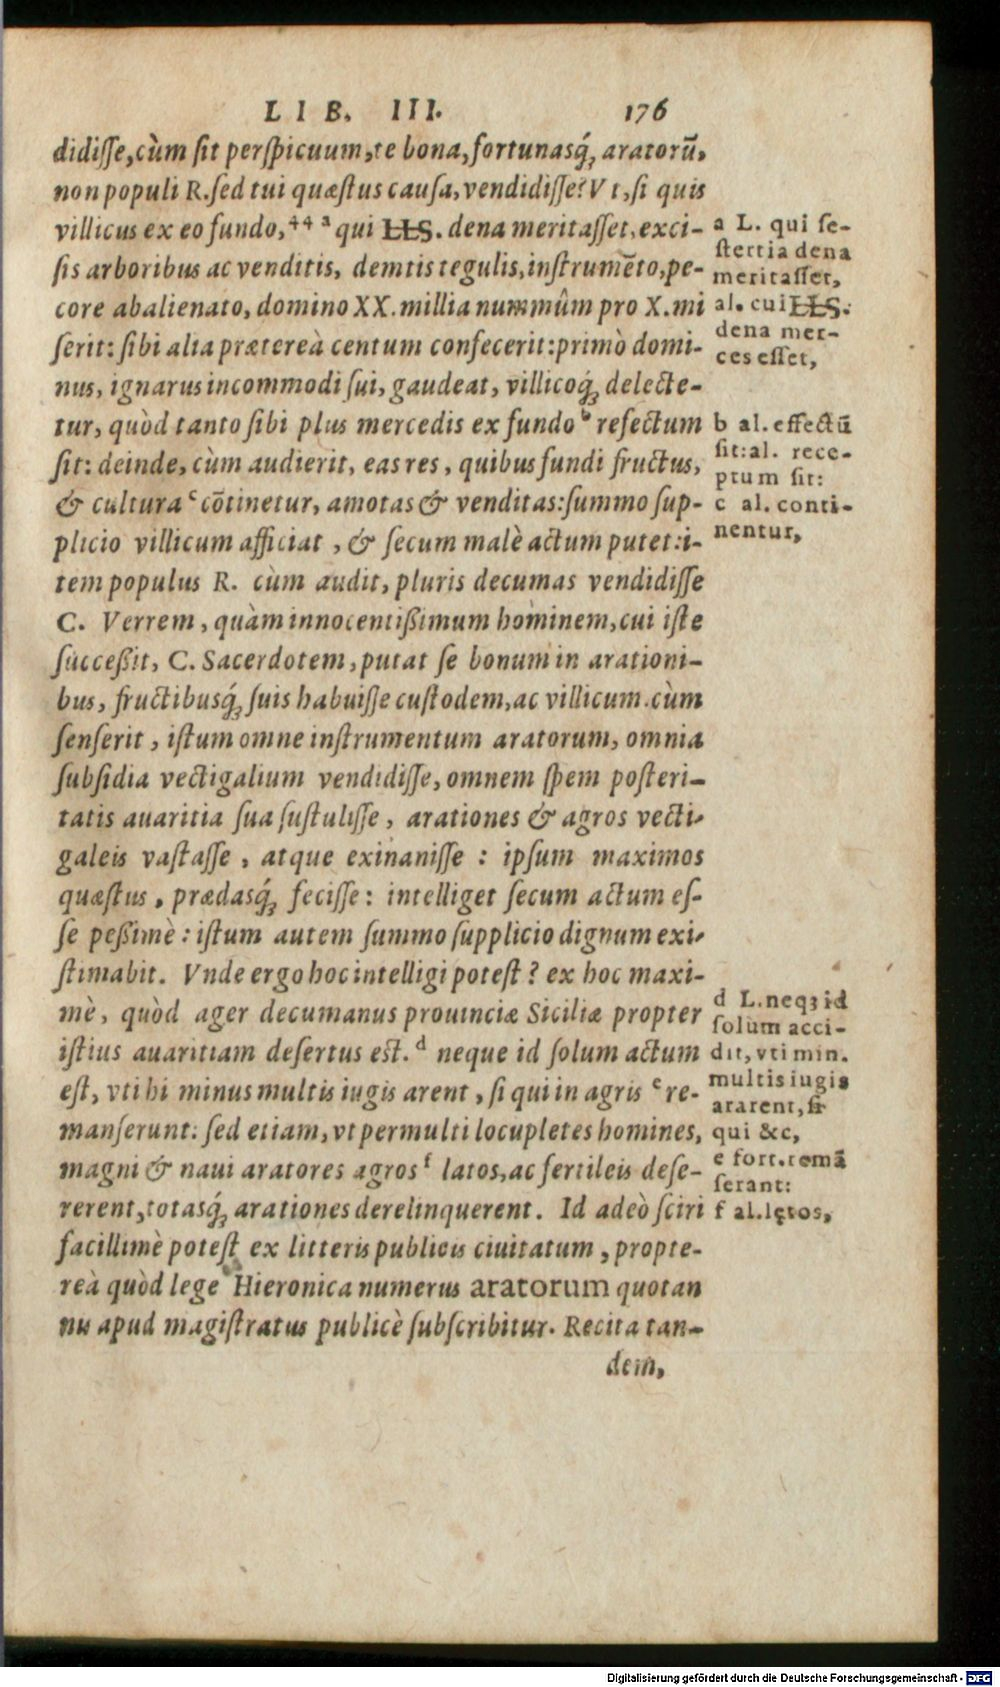 LIB. III. 176
didiſſe, cùm ſit perſpicuum, te bona, fortunasq́; aratorũ,
non populi R. ſed tui quæſtus cauſa, vendidiſſe? Vt, ſi quis
villicus ex eo fundo, 44 a qui LLS. dena meritaſſet, exci-
ſis arboribus ac venditis, demtis tegulis, inſtrumẽto, pe-
core abalienato, domino XX. millia nummûm pro X. mi
ſerit: ſibi alia prætereà centum confecerit: primò domi-
nus, ignarus incommodi ſui, gaudeat, villicoq́; delecte-
tur, quòd tanto ſibi plus mercedis ex fundo b refectum
ſit: deinde, cùm audierit, eas res, quibus fundi fructus,
& cultura c cõtinetur, amotas & venditas: ſummo ſup-
plicio villicum afficiat, & ſecum malè actum putet: i-
tem populus R. cùm audit, pluris decumas vendidiſſe
C. Verrem, quàm innocentißimum hominem, cui iſte
ſucceßit, C. Sacerdotem, putat ſe bonum in arationi-
bus, fructibusq́; ſuis habuiſſe cuſtodem, ac villicum. cùm
ſenſerit, iſtum omne inſtrumentum aratorum, omnia
ſubſidia vectigalium vendidiſſe, omnem ſpem poſteri-
tatis auaritia ſua ſuſtuliſſe, arationes & agros vecti-
galeis vaſtaſſe, atque exinaniſſe: ipſum maximos
quæſtus, prædasq́; feciſſe: intelliget ſecum actum eſ-
ſe peßimè: iſtum autem ſummo ſupplicio dignum exi-
ſtimabit. Vnde ergo hoc intelligi poteſt? ex hoc maxi-
mè, quòd ager decumanus prouinciæ Siciliæ propter
iſtius auaritiam deſertus eſt. d neque id ſolum actum
eſt, vti hi minus multis iugis arent, ſi qui in agris e re-
manſerunt: ſed etiam, vt permulti locupletes homines,
magni & naui aratores agros f latos, ac fertileis deſe-
rerent, totasq́; arationes derelinquerent. Id adeò ſciri
facillimè poteſt ex litteris publicis ciuitatum, propte-
reà quòd lege Hieronica numerus aratorum quotan
nis apud magiſtratus publicè ſubſcribitur. Recita tan-
dem,
a L. qui ſe-
ſtertia dena
meritaſſet,
al. cui LLS.
dena mer-
ces eſſet,
b al. effectũ
ſit: al. rece-
ptum ſit:
c al. conti-
nentur,
d L. neq; id
ſolùm acci-
dit, vti min.
multis iugis
ararent, ſi
qui &c,
e fort. remã
ſerant:
f al. lętos,
Digitalisierung gefördert durch die Deutsche Forschungsgemeinschaft - DFG